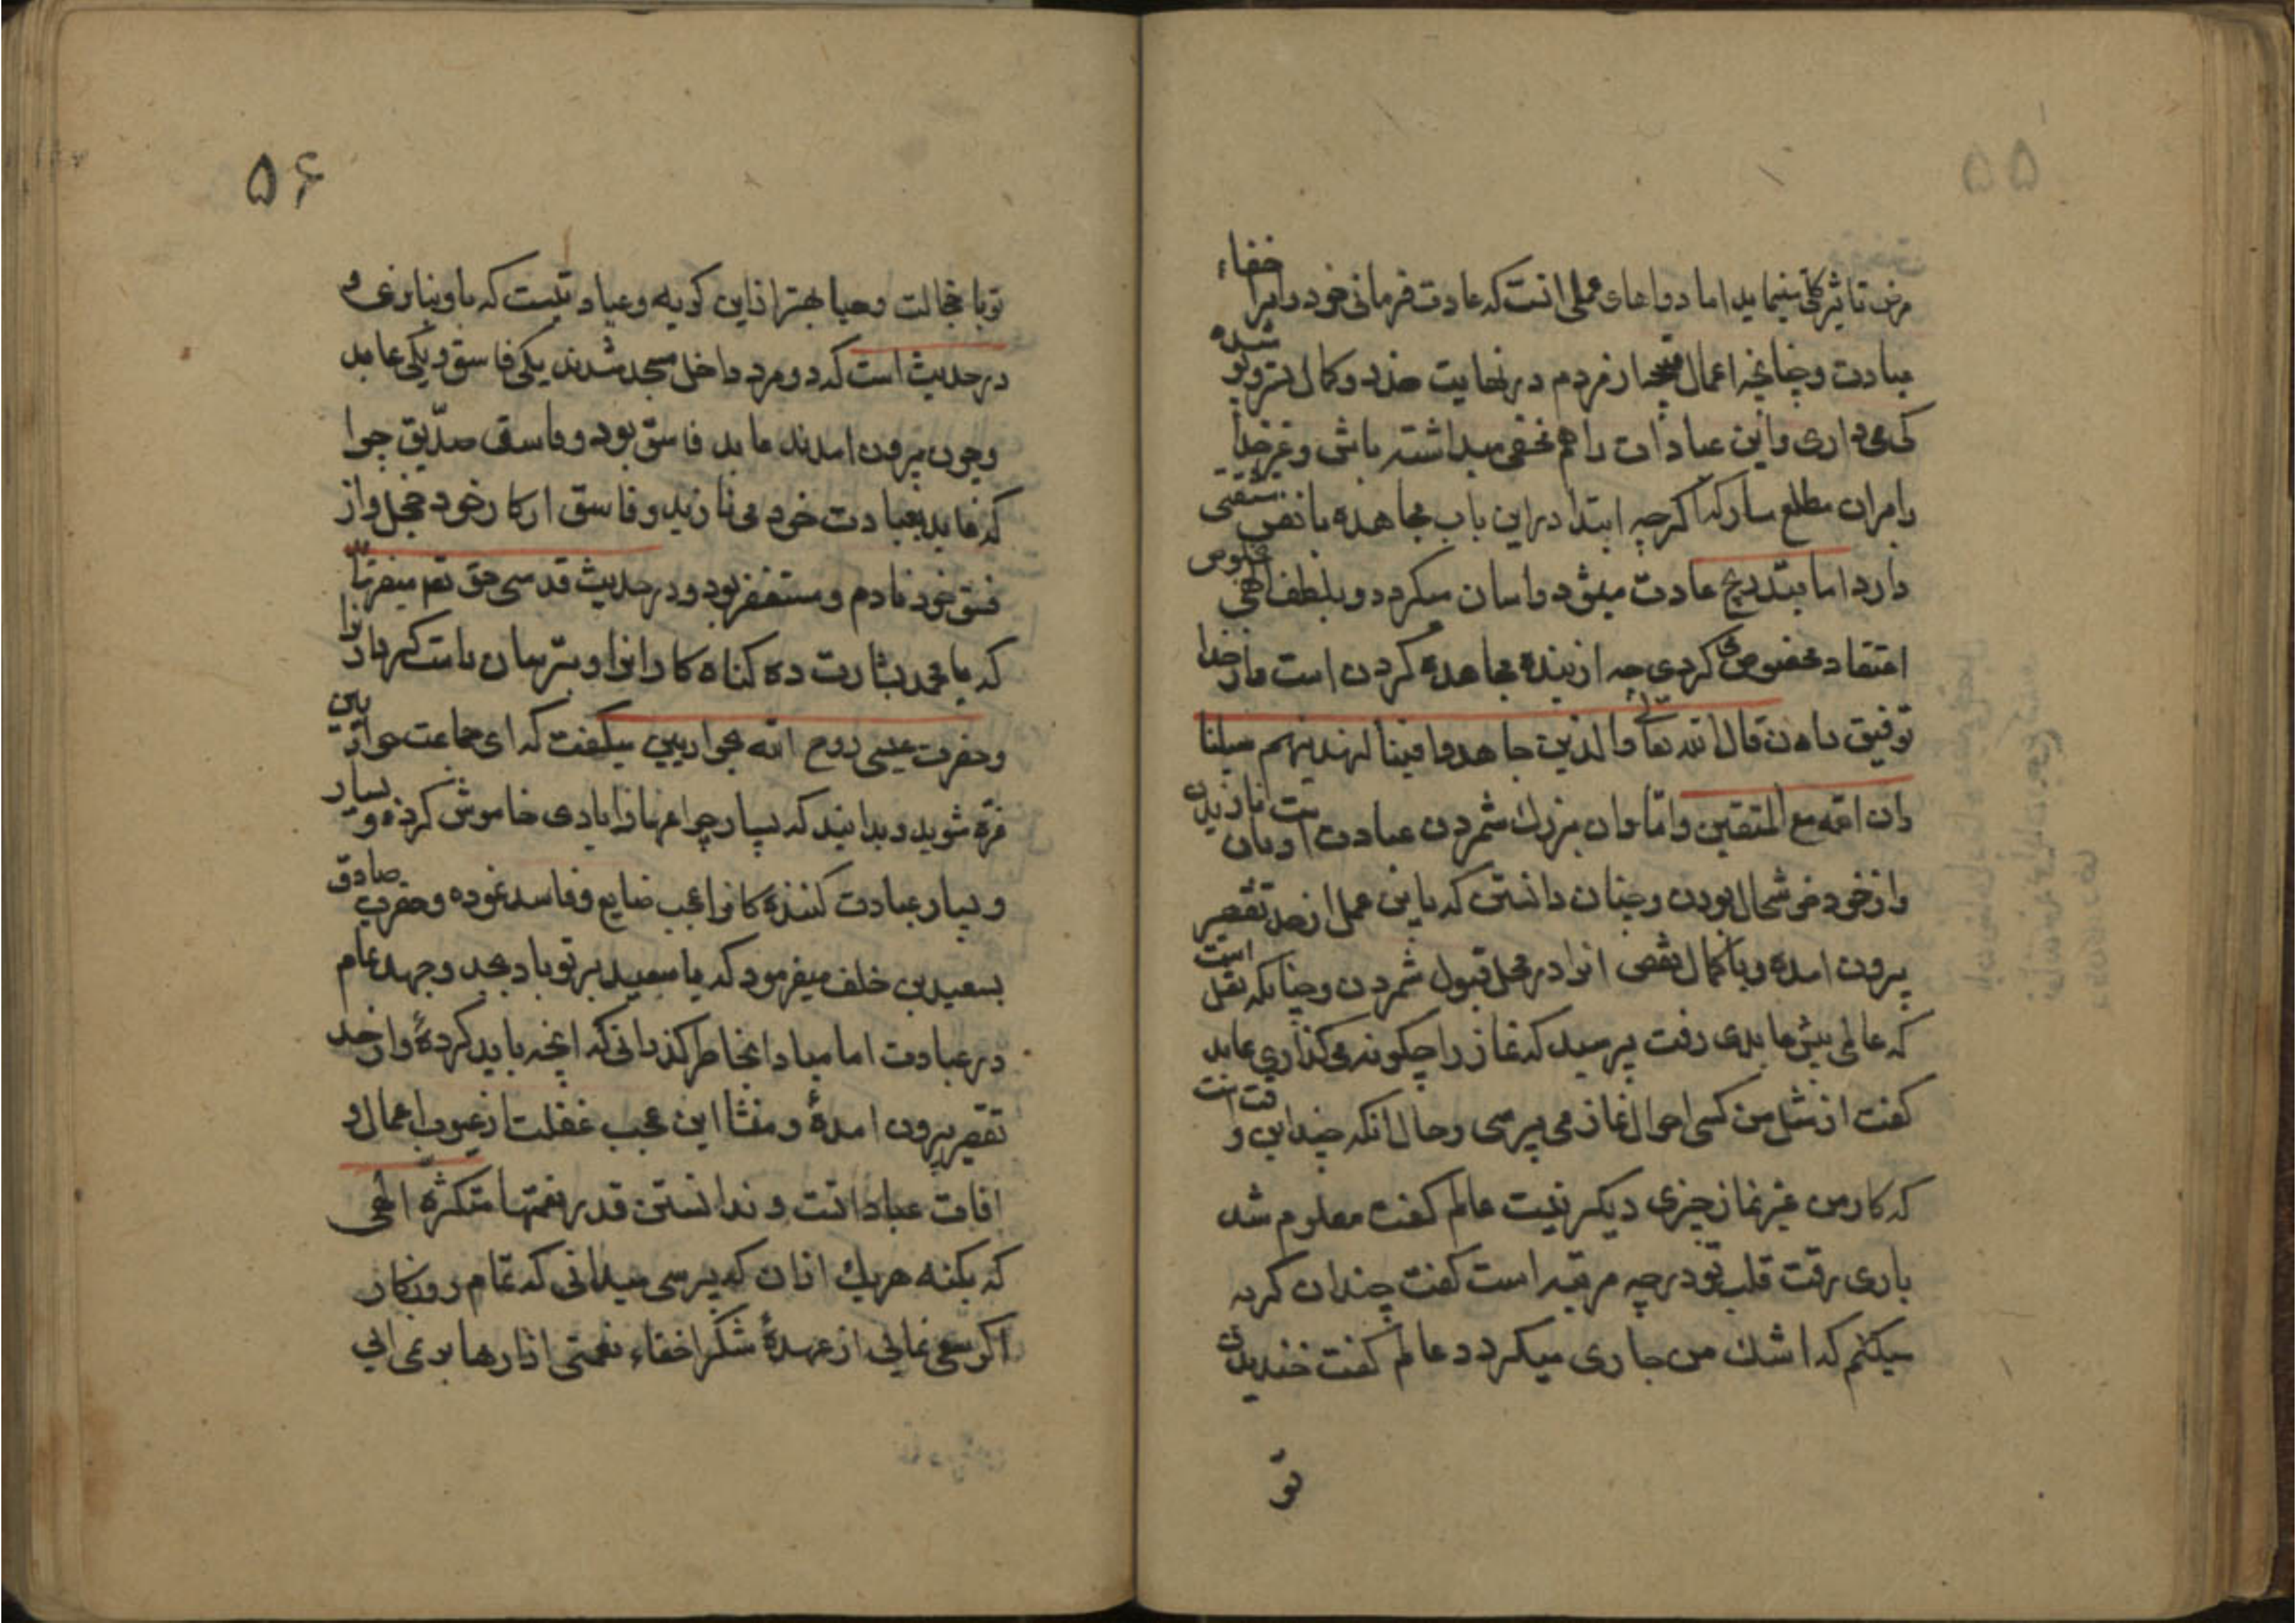 ۵۵
مرض تاثیر کلی مینماید اما دواهای عملی انست که عادت فرمائی خود را بر اخفاء
عبادت و چنانچه اعمال قبیحه از مردم در نهایت حذر و کمال تستر
می داری و این عبادات را هم مخفی میداشته باشی و غیر خدا
را بران مطلع نسازی که اگرچه ابتدا در این باب مجاهده با نفس مشقتی
دارد اما بتدریج عادت میشود و اسان میگردد و بلطف الهی بخلوص
اعتقاد مخصوص کردی چه از بنده مجاهده کردن است و از خدا
توفیق دادن قال الله تعالی والذین جاهدوا فینا لنهدینهم سبلنا
وان الله مع المتقین و اما وان بزرگ شمردن عبادت است و بان نازیدن
و از خود خوشحال بودن و چنان دانستن که باین عمل از حد تقصیر
بیرون امده و با کمال نقص انرا در محل قبول شمردن و چنانکه نقل است
که عالمی پیش عابدی رفت پرسید که نماز را چگونه میگذاری عابد
گفت از مثل من کسی احوال نماز می پرسی و حال انکه چندین وقت است
که کار من غیر نماز چیزی دیگر نیست عالم گفت معلوم شد
باری رقت قلب تو در چه مرتبه است گفت چندان گریه
میکنم که اشک من جاری میگردد عالم گفت خندیدن
تو
۵۶
تو با خجالت و حیا بهتر از این گریه و عبادتیست که باو بنازی و
در حدیث است که دو مرد داخل مسجد شدند یکی فاسق و یکی عابد
و چون بیرون امدند عابد فاسق بود و فاسق صدّیق چرا
که عابد بعبادت خود می نازید و فاسق از کار خود خجل و از
فسق خود نادم و مستغفر بود و در حدیث قدسی حق تعم میفرماید
که یا محمد بشارت ده گناه کارانرا و بترسان نیکوکارانرا
و حضرت عیسی روح الله بحواریین میگفت که ای جماعت حواریین
غره مشوید و بدانید که بسیار چراغها را بادی خاموش کرده و بسیار
و بسیار عبادت کننده کانرا عجب ضایع و فاسد نموده و حضرت صادق
بسعید بن خلف میفرمود که یا سعید بر تو باد بجد و جهد تمام
در عبادت اما مبادا بخاطر گذرانی که انچه باید کردهٔ و از حد
تقصیر بیرون امدهٔ و منشا این عجب غفلت از عیوب اعمال و
افات عباداتست و ندانستن قدر نعمتها متکثره الهی
که بکنه هر یک ازان که برسی میدانی که تمام روزگار
اگر سعی نمایی از عهدهٔ شکر اخفاء نعمتی از انها بر نمی ایی